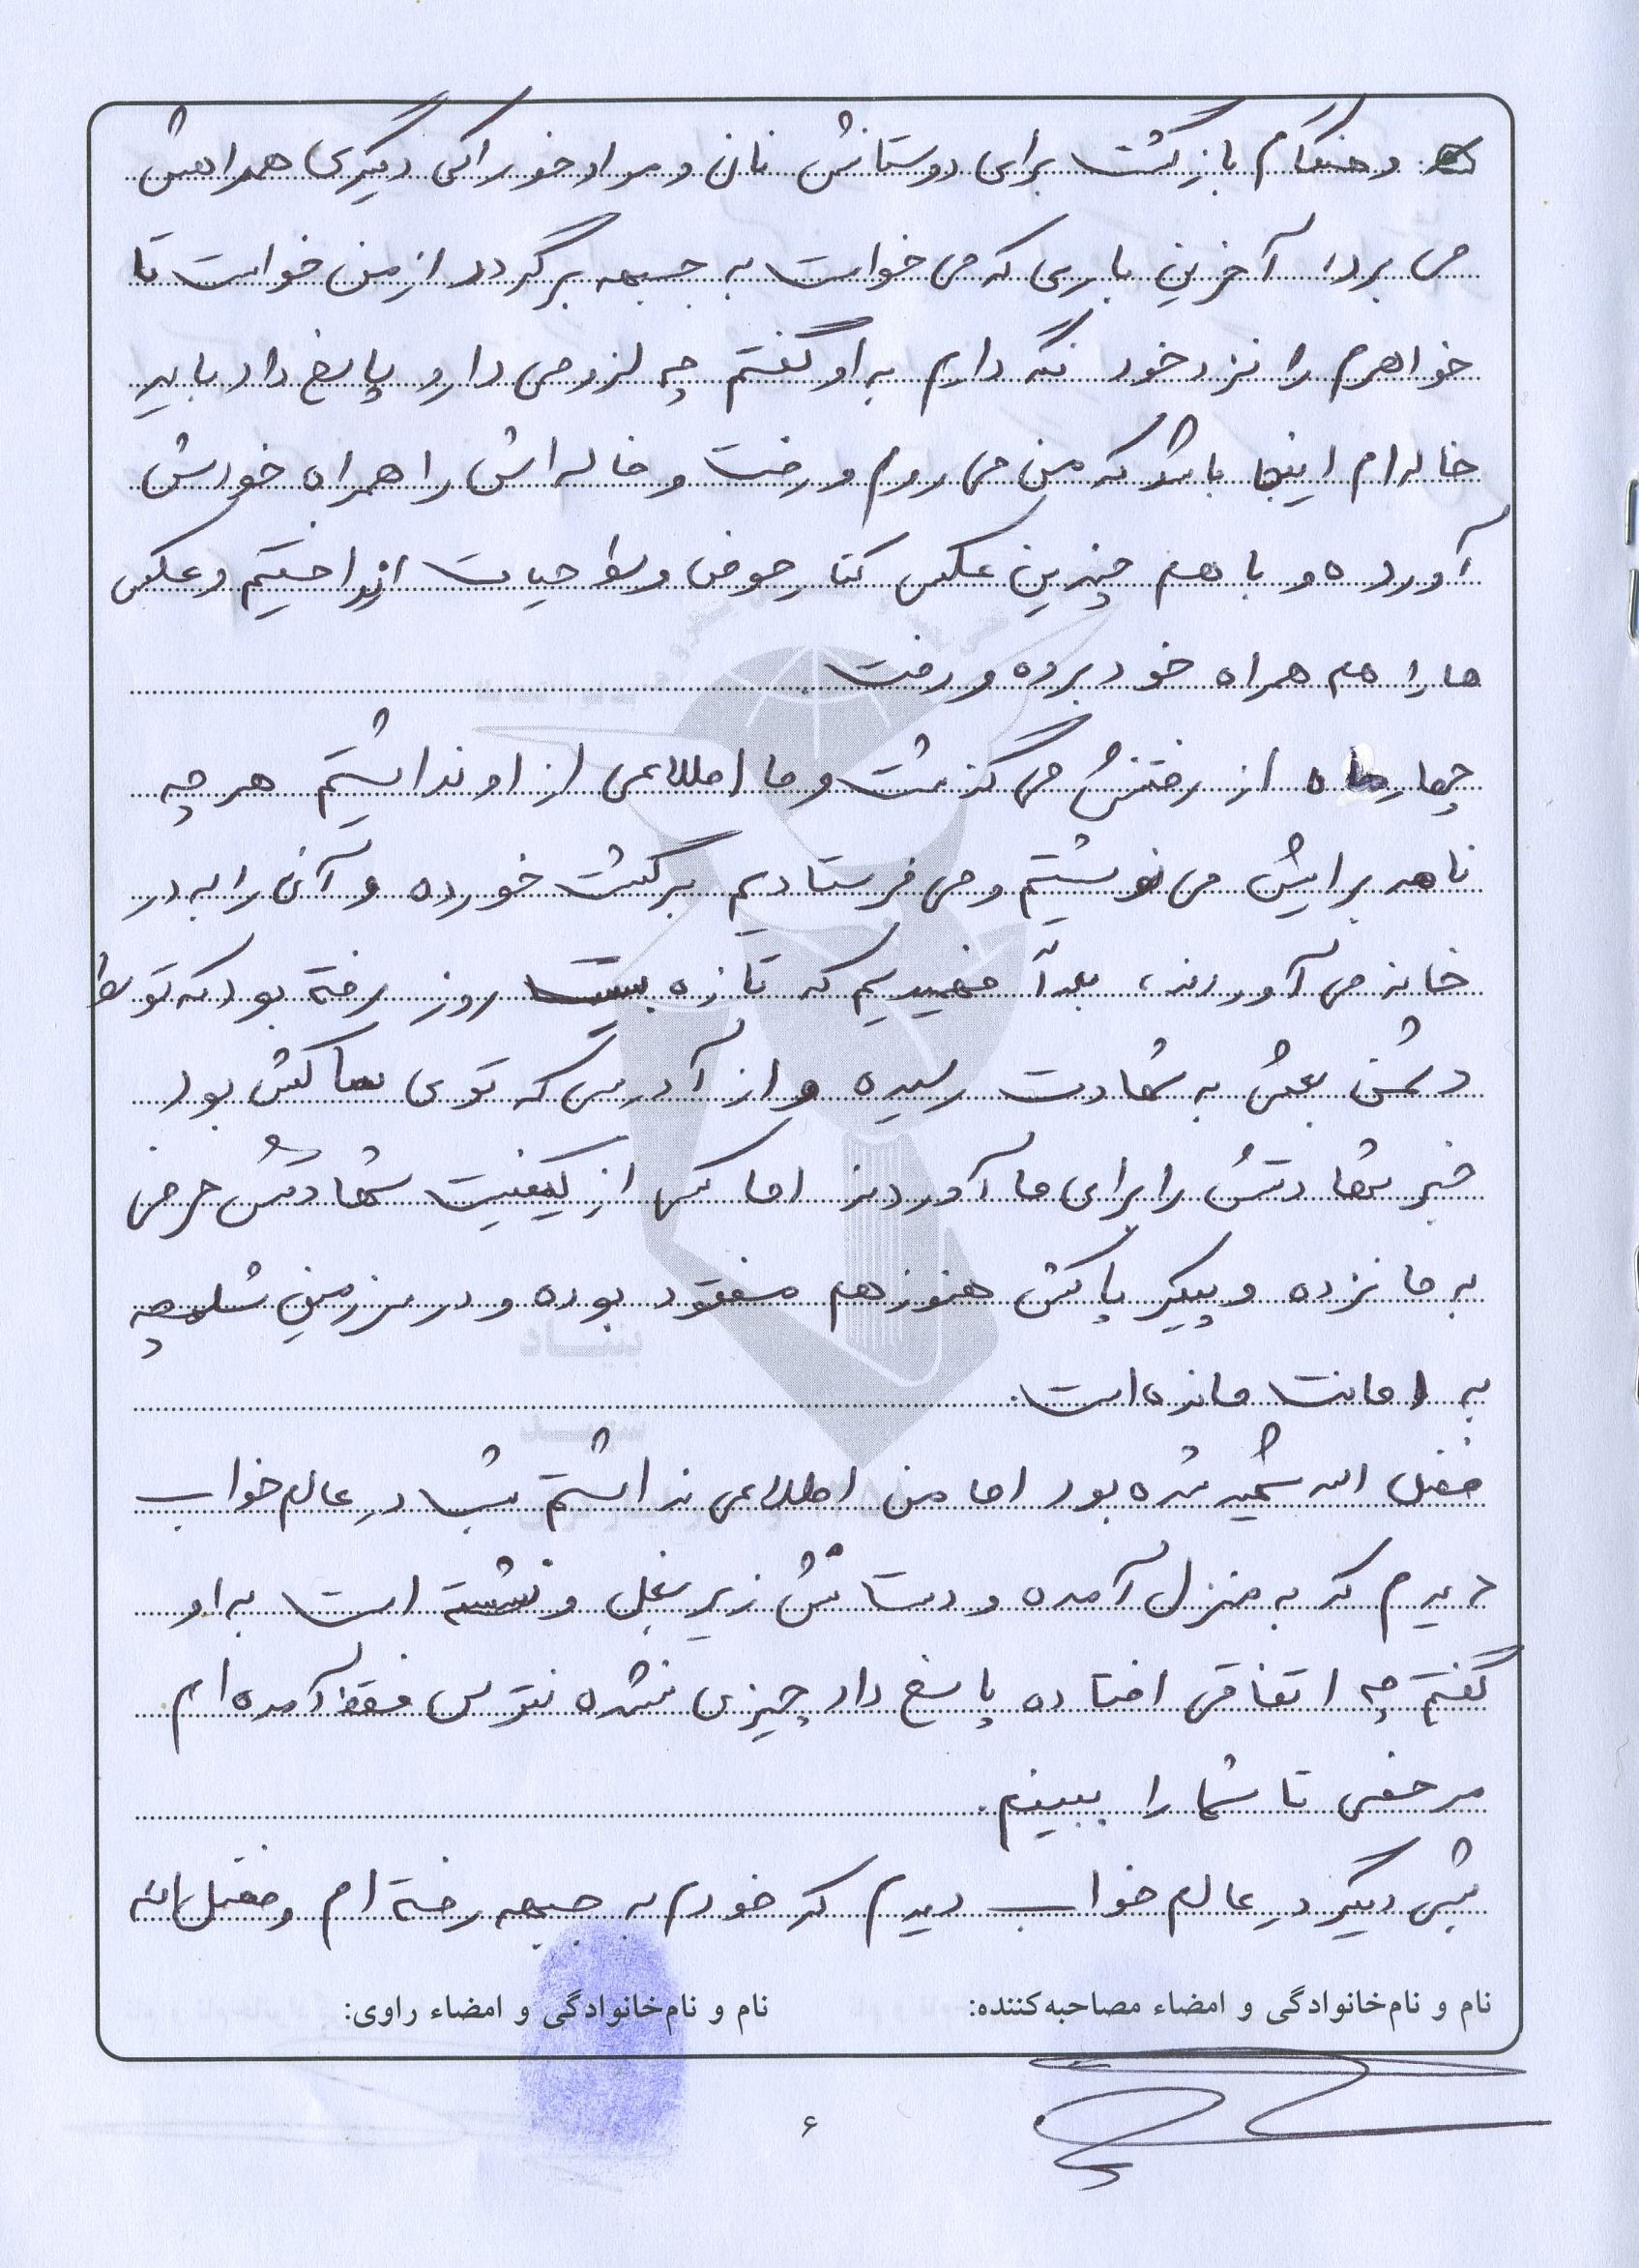 و هنگام بازگشت برای دوستانش نان و مواد خوراکی دیگری همراهش
می برد، آخرین باری که می خواست به جبهه برگردد از من خواست تا
خواهرم را نزد خود نگه دارم به او گفتم چه لزومی دارد پاسخ داد باید
خاله ام اینجا باشد که من می روم و رفت و خاله اش را همراه خودش
آورده و با هم چندین عکس کنار حوض وسط حیاط انداختیم و عکس
ها را هم همراه خود برده و رفت.
چهار ماه از رفتنش می گذشت و ما اطلاعی از او نداشتیم هر چه
نامه برایش می نوشتیم و می فرستادیم برگشت خورده و آن را به در
خانه می آوردند، بعداً فهمیدیم که تازه بیست روز رفته بود که توسط
دشمن بعثی به شهادت رسیده و از آدرسی که توی ساکش بود
خبر شهادتش را برای ما آوردند اما کسی از کیفیت شهادتش حرفی
به ما نزده و پیکر پاکش هنوز هم مفقود بوده و در سرزمین شلمچه
به امانت مانده است.
فضل الله شهید شده بود اما من اطلاعی نداشتم شب در عالم خواب
دیدم که به منزل آمده و دستانش زیر بغل و نشسته است به او
گفتم چه اتفاقی افتاده پاسخ داد چیزی نشده نترس فقط آمده ام
مرخصی تا شما را ببینم.
شبی دیگر در عالم خواب دیدم که خودم به جبهه رفته ام و فضل الله
نام و نام‌خانوادگی و امضاء مصاحبه‌کننده: نام و نام‌خانوادگی و امضاء راوی:
۶